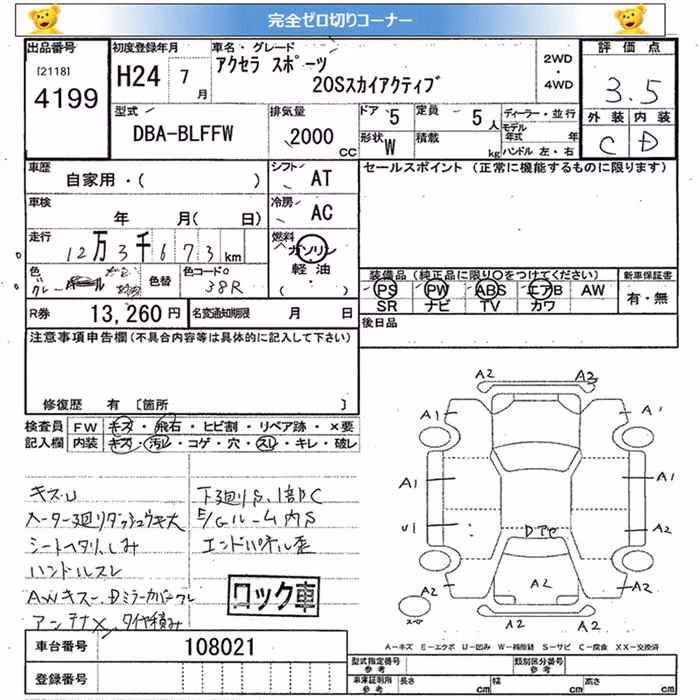 完全ゼロ切りコーナー
出品番号 初度登録年月 車名・グレード 2WD・4WD 評価点
[2118]
4199
H24 7月
アクセラ スポーツ
20Sスカイアクティブ
3.5
外装 内装
C D
型式 排気量 ドア 5 定員 5人 ディーラー・並行
DBA-BLFFW 2000CC
形状 W 積載 kg モデル年式 年
ハンドル 左・右
車歴 シフト セールスポイント (正常に機能するものに限ります)
自家用・( ) AT
車検 冷房
年 月(日) AC
走行 燃料
12万3千673km ガソリン
軽油
( )
色 色替 色コードNo
グレー 38R
装備品(純正品に限り○をつけてください) 新車保証書
PS PW ABS エアB AW 有・無
SR ナビ TV カワ
R券 13,260円 名変通知期限 月 日 後日品
注意事項申告欄(不具合内容等は具体的に記入して下さい)
修復歴 有 [箇所 ]
検査員 FW キズ・飛石・ヒビ割・リペア跡・×要
記入欄 内装 キズ・汚レ・コゲ・穴・スレ・キレ・破レ
キズU 下廻りS、1部C
メーター廻りダッシュウキ大 E/Gルーム内S
シートヘタリ、しみ エンドパネル歪
ハンドルスレ
AWキズ
アンテナ×、タイヤ積み
ロック車
A2 A3
A1 A1
A1 A1
U1 A2
Dアセ
A2 A2 A2
A2 A2
スペア
A-キズ E-エクボ U-凹み W-補修跡 S-サビ C-腐食 XX-交換済
車台番号 108021
登録番号
型式指定番号 参考 類別区分番号 参考
車庫証明用 参考 長さ cm 幅 cm 高さ cm